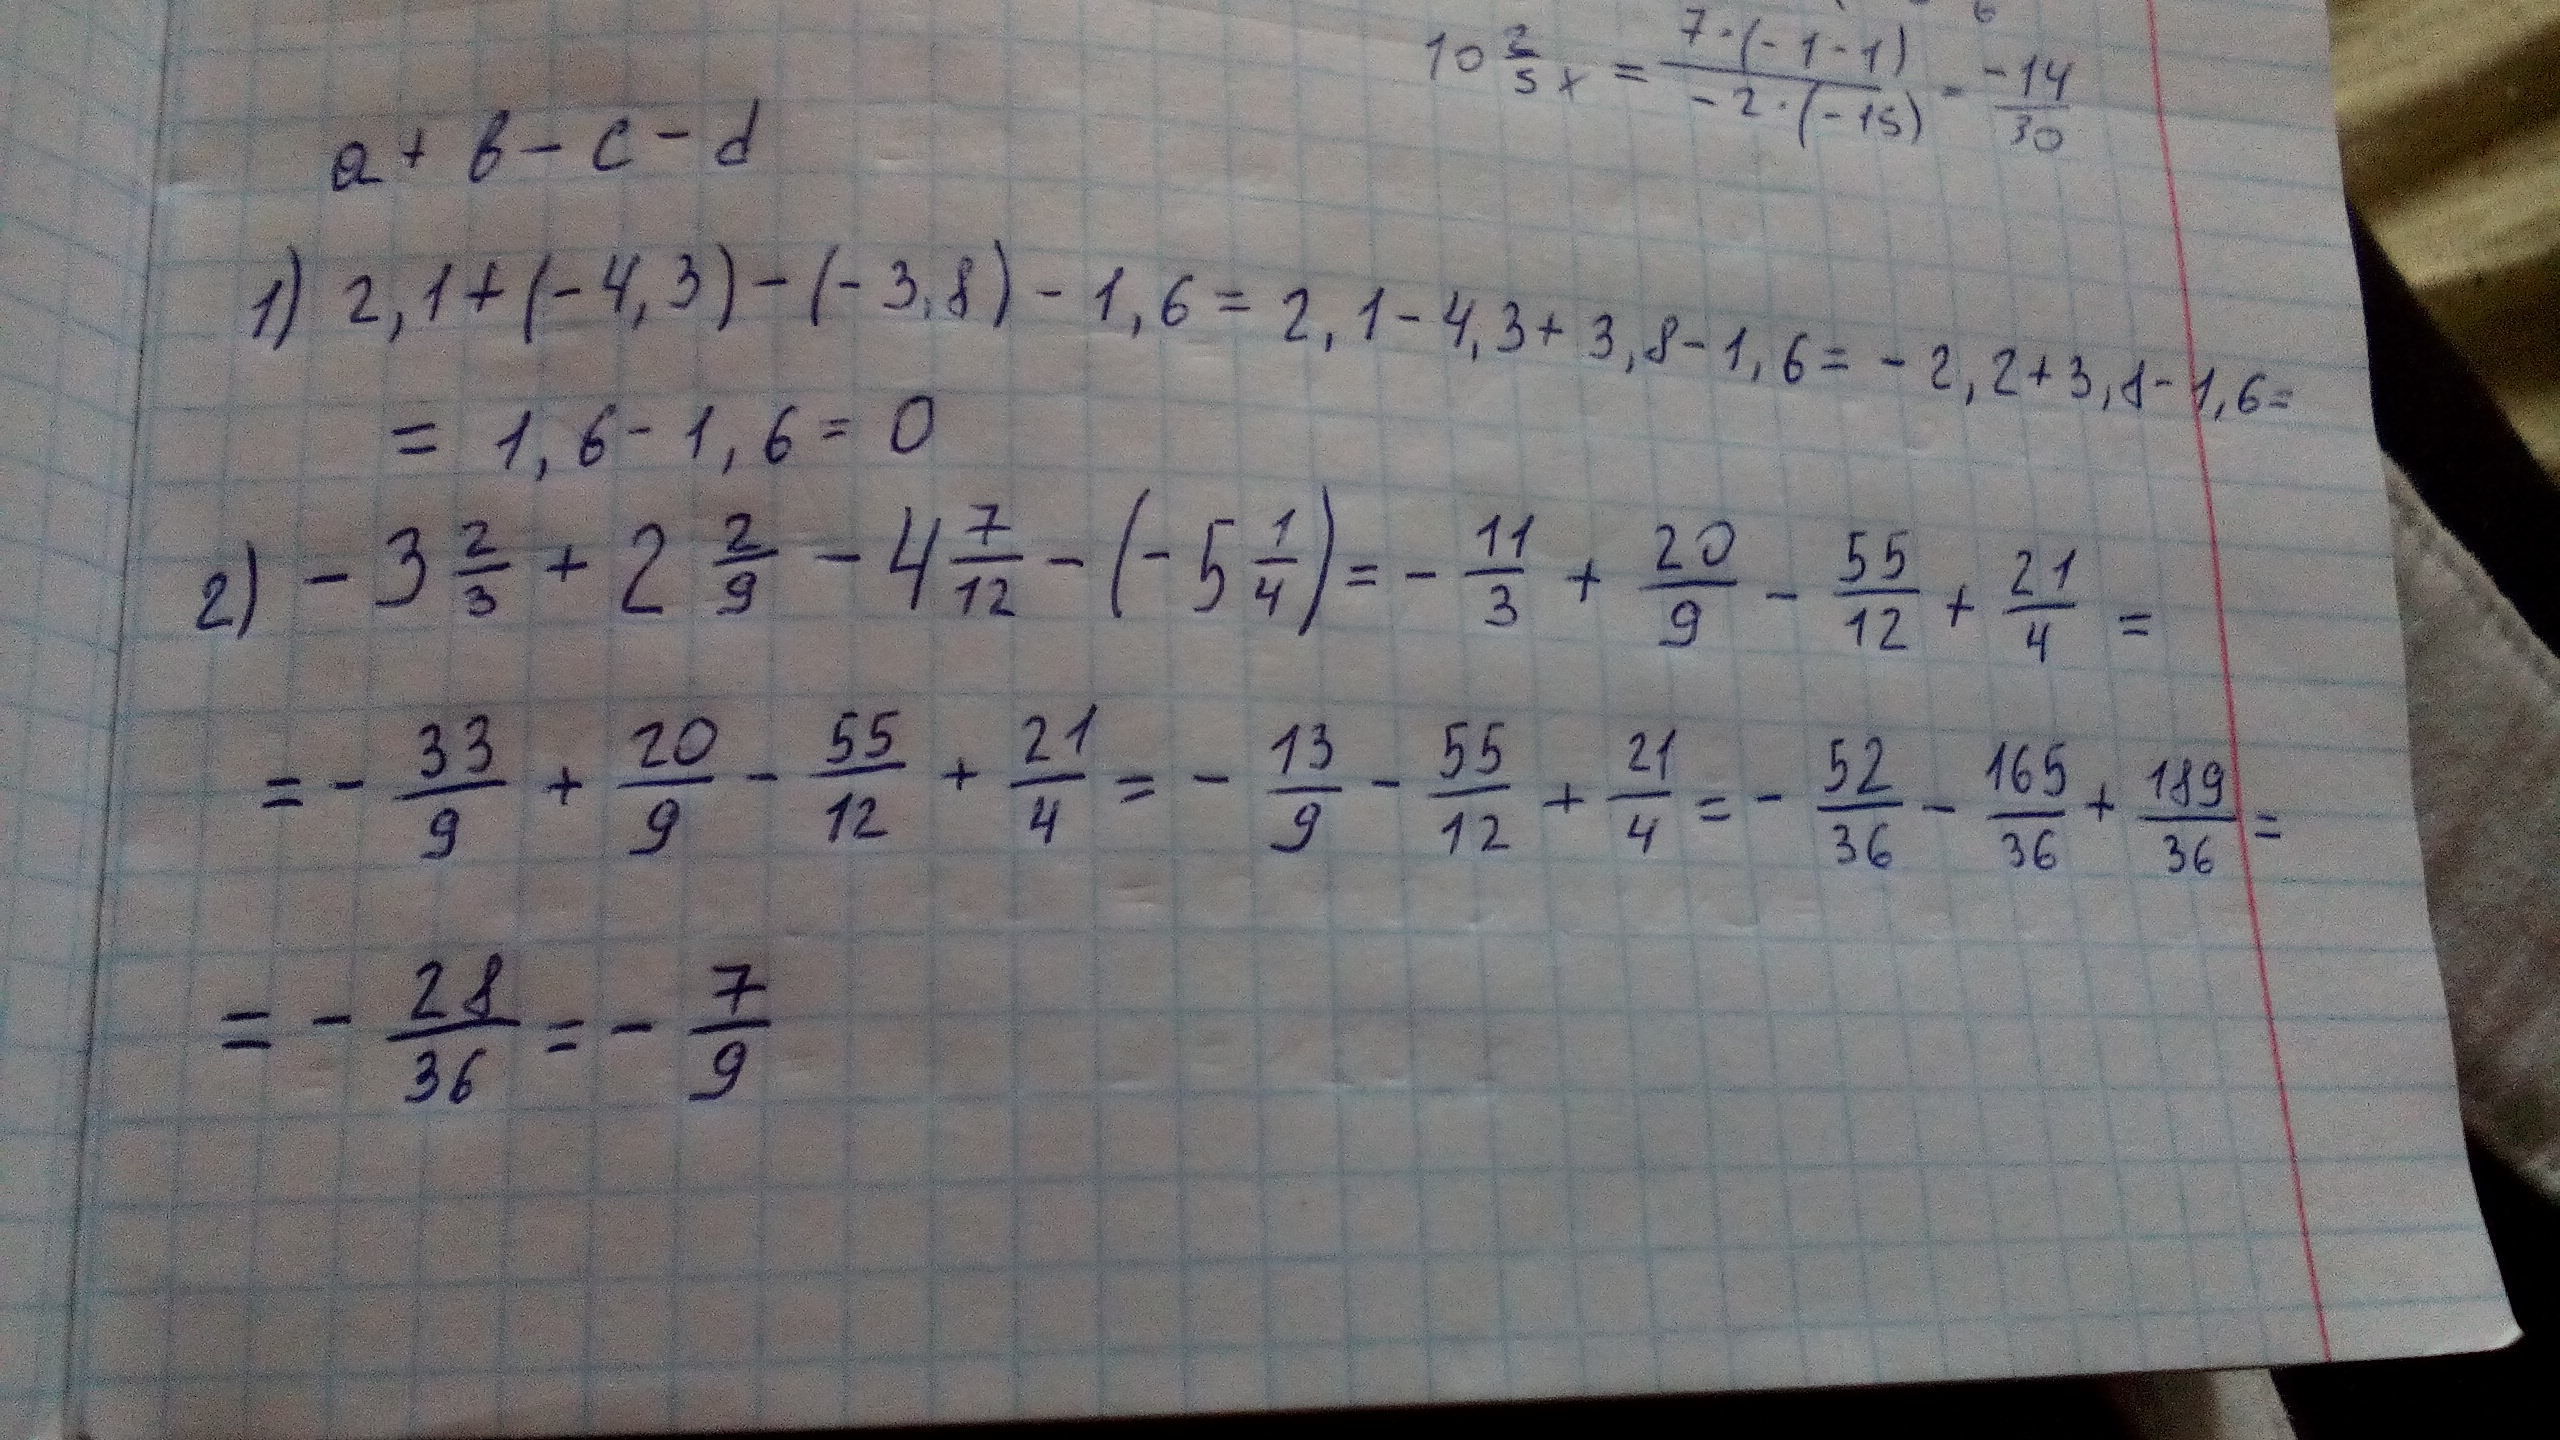 10 2/5 x = 7·(-1-1)/-2·(-15) = -14/30
a + b - c - d
1) 2,1+(-4,3)-(-3,8)-1,6=2,1-4,3+3,8-1,6=-2,2+3,8-1,6=
= 1,6-1,6=0
2) -3 2/3 + 2 2/9 - 4 7/12 - (-5 1/4) = - 11/3 + 20/9 - 55/12 + 21/4 =
= - 33/9 + 20/9 - 55/12 + 21/4 = - 13/9 - 55/12 + 21/4 = - 52/36 - 165/36 + 189/36 =
= - 28/36 = - 7/9